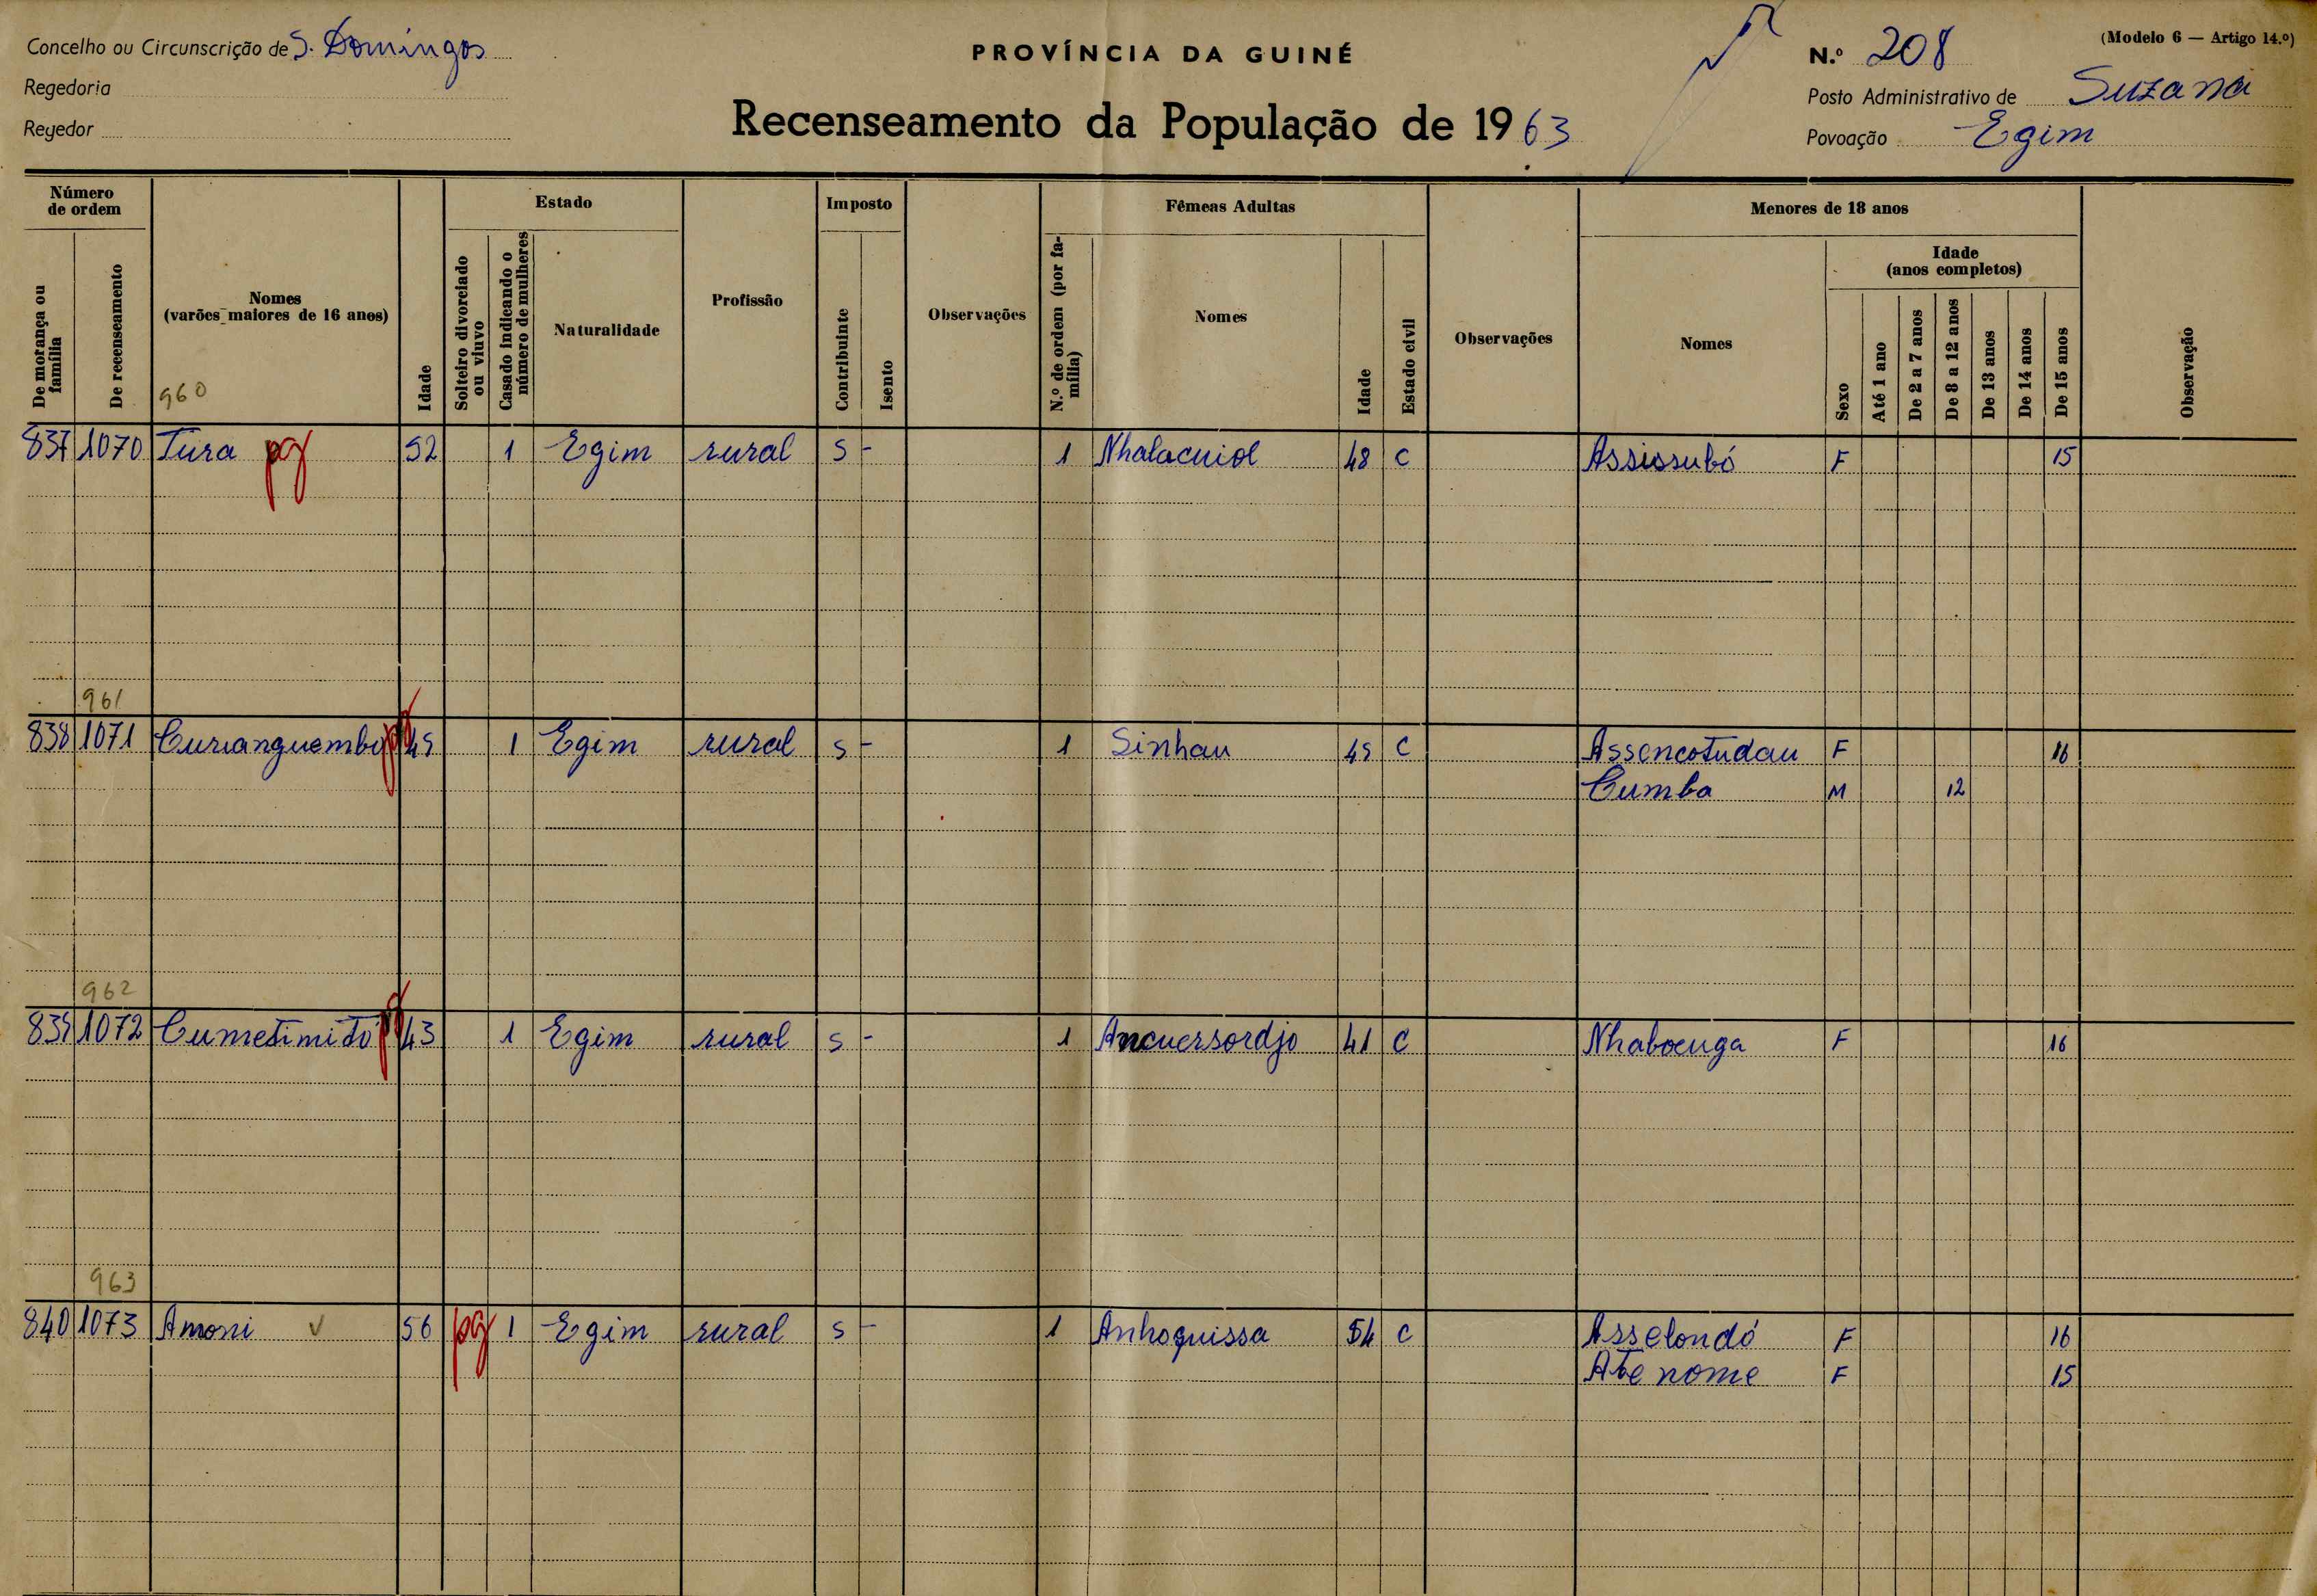 Concelho ou Circunscrição de S. Domingos
Regedoria
Reyedor
PROVÍNCIA DA GUINÉ
Recenseamento da População de 1963
(Modelo 6 — Artigo 14.º)
N.º 208
Posto Administrativo de Suzana
Povoação Egim
Número de ordem
De morança ou família
De recenseamento
Nomes
(varões maiores de 16 anos)
960
Idade
Estado
Solteiro divorciado ou viuvo
Casado indicando o número de mulheres
Naturalidade
Profissão
Imposto
Contribuinte
Isento
Observações
Fêmeas Adultas
N.º de ordem (por família)
Nomes
Idade
Estado civil
Observações
Menores de 18 anos
Nomes
Sexo
Idade
(anos completos)
Até 1 ano
De 2 a 7 anos
De 8 a 12 anos
De 13 anos
De 14 anos
De 15 anos
Observação
837 1070 Tura pg 52 1 Egim rural S - 1 Nhalacuiol 48 C Assissubó F 15
961
838 1071 Curianguembu pg 45 1 Egim rural S - 1 Sinhau 45 C Assencotudau F 16
Cumba M 12
962
839 1072 Cumetimitó pg 43 1 Egim rural S - 1 Ancuersordjo 41 C Nhaboenga F 16
963
840 1073 Amoni v 56 pg 1 Egim rural S - 1 Anhoquissa 54 C Asselondó F 16
Abenome F 15